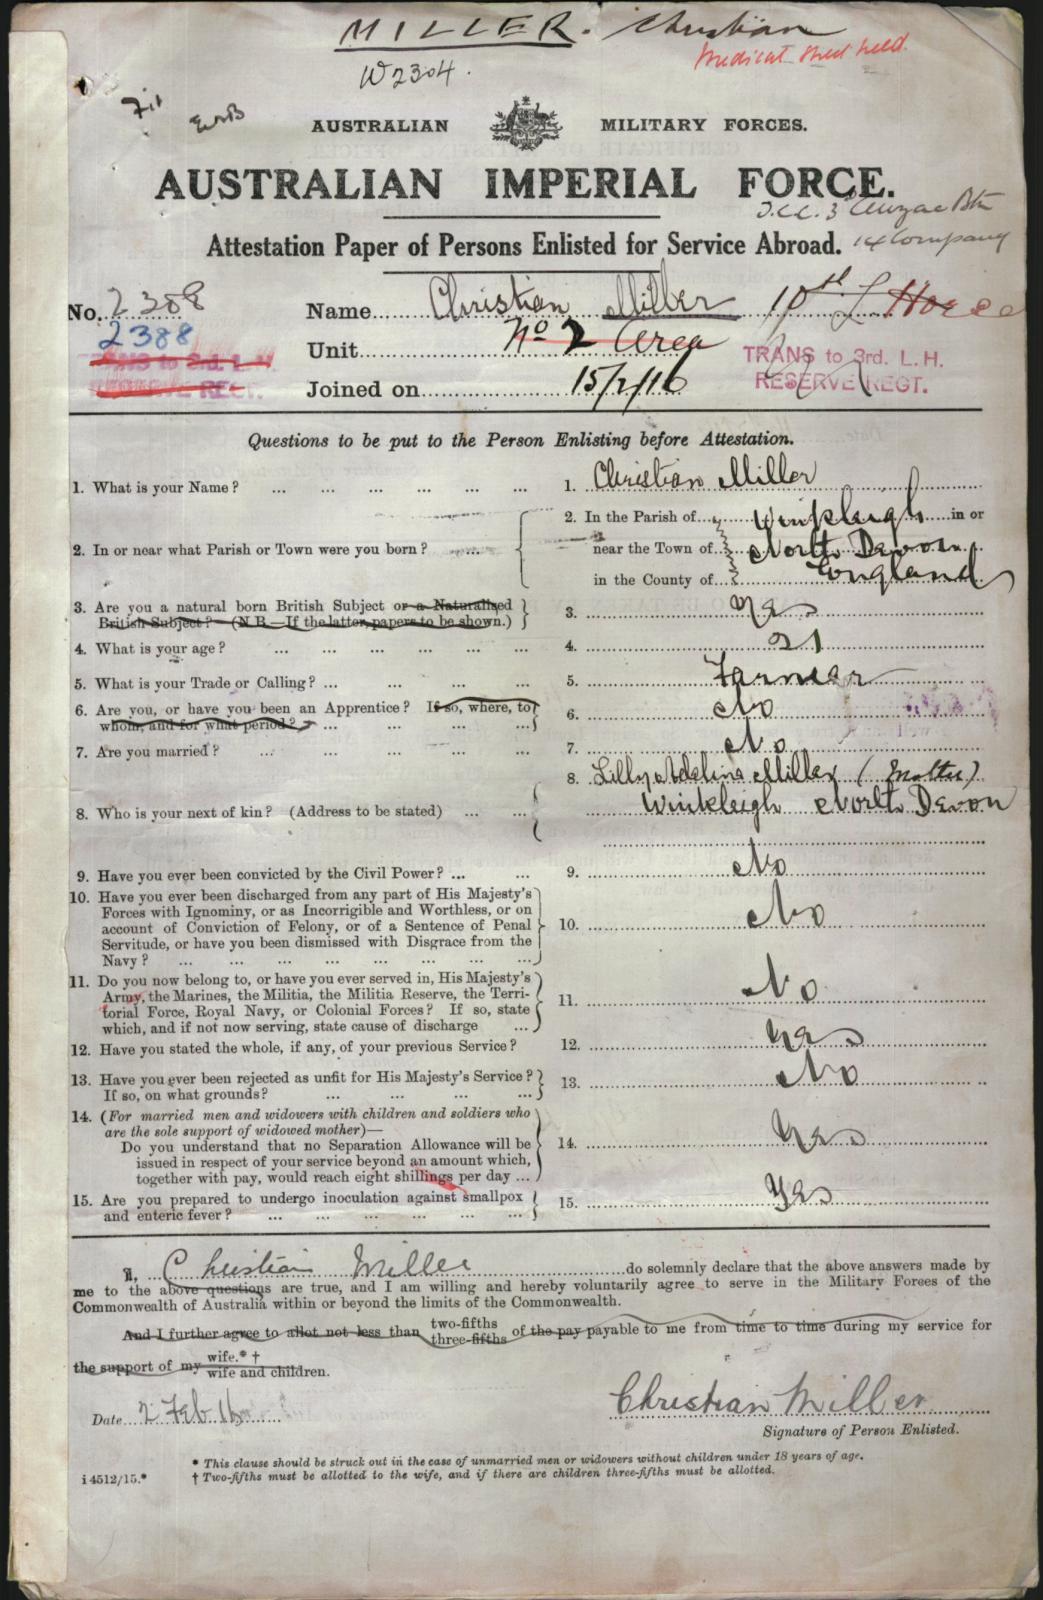 MILLER. Christian
Medical sheet held.
W2304.
Fit
AUSTRALIAN MILITARY FORCES.
AUSTRALIAN IMPERIAL FORCE.
I.C.C. 3 Anzac Btn
14 Company
Attestation Paper of Persons Enlisted for Service Abroad.
No. 2388 Name Christian Miller 10th L Horse
2388
Unit No 2 Area
TRANS to 3rd. L. H.
RESERVE REGT.
TRANS to 3rd. L. H.
RESERVE REGT.
Joined on 15/2/16
Questions to be put to the Person Enlisting before Attestation.
1. What is your Name? ... ... ... ... ... ... 1. Christian Miller
2. In or near what Parish or Town were you born? ... 2. In the Parish of Winkleigh in or
near the Town of North Devon
in the County of England
3. Are you a natural born British Subject or a Naturalised
British Subject? (N.B.—If the latter, papers to be shown.) 3. Yes
4. What is your age? ... ... ... ... ... ... 4. 21
5. What is your Trade or Calling? ... ... ... ... 5. Farmer
6. Are you, or have you been an Apprentice? If so, where, to
whom, and for what period? ... ... ... ... 6. No
7. Are you married? ... ... ... ... ... 7. No
8. Who is your next of kin? (Address to be stated) ... ... 8. Lilly Adelina Miller (Mother)
Winkleigh North Devon
9. Have you ever been convicted by the Civil Power? ... ... 9. No
10. Have you ever been discharged from any part of His Majesty's
Forces with Ignominy, or as Incorrigible and Worthless, or on
account of Conviction of Felony, or of a Sentence of Penal
Servitude, or have you been dismissed with Disgrace from the
Navy? ... ... ... ... ... ... ... ... 10. No
11. Do you now belong to, or have you ever served in, His Majesty's
Army, the Marines, the Militia, the Militia Reserve, the Terri-
torial Force, Royal Navy, or Colonial Forces? If so, state
which, and if not now serving, state cause of discharge ... 11. No
12. Have you stated the whole, if any, of your previous Service? 12. Yes
13. Have you ever been rejected as unfit for His Majesty's Service?
If so, on what grounds? ... ... ... ... 13. No
14. (For married men and widowers with children and soldiers who
are the sole support of widowed mother)—
Do you understand that no Separation Allowance will be
issued in respect of your service beyond an amount which,
together with pay, would reach eight shillings per day ... 14. Yes
15. Are you prepared to undergo inoculation against smallpox
and enteric fever? ... ... ... ... ... ... 15. Yes
I, Christian Miller do solemnly declare that the above answers made by
me to the above questions are true, and I am willing and hereby voluntarily agree to serve in the Military Forces of the
Commonwealth of Australia within or beyond the limits of the Commonwealth.
And I further agree to allot not less than two-fifths three-fifths of the pay payable to me from time to time during my service for
the support of my wife.* † wife and children.
Date 2 Feb 16
Christian Miller
Signature of Person Enlisted.
* This clause should be struck out in the case of unmarried men or widowers without children under 18 years of age.
i 4512/15.* † Two-fifths must be allotted to the wife, and if there are children three-fifths must be allotted.